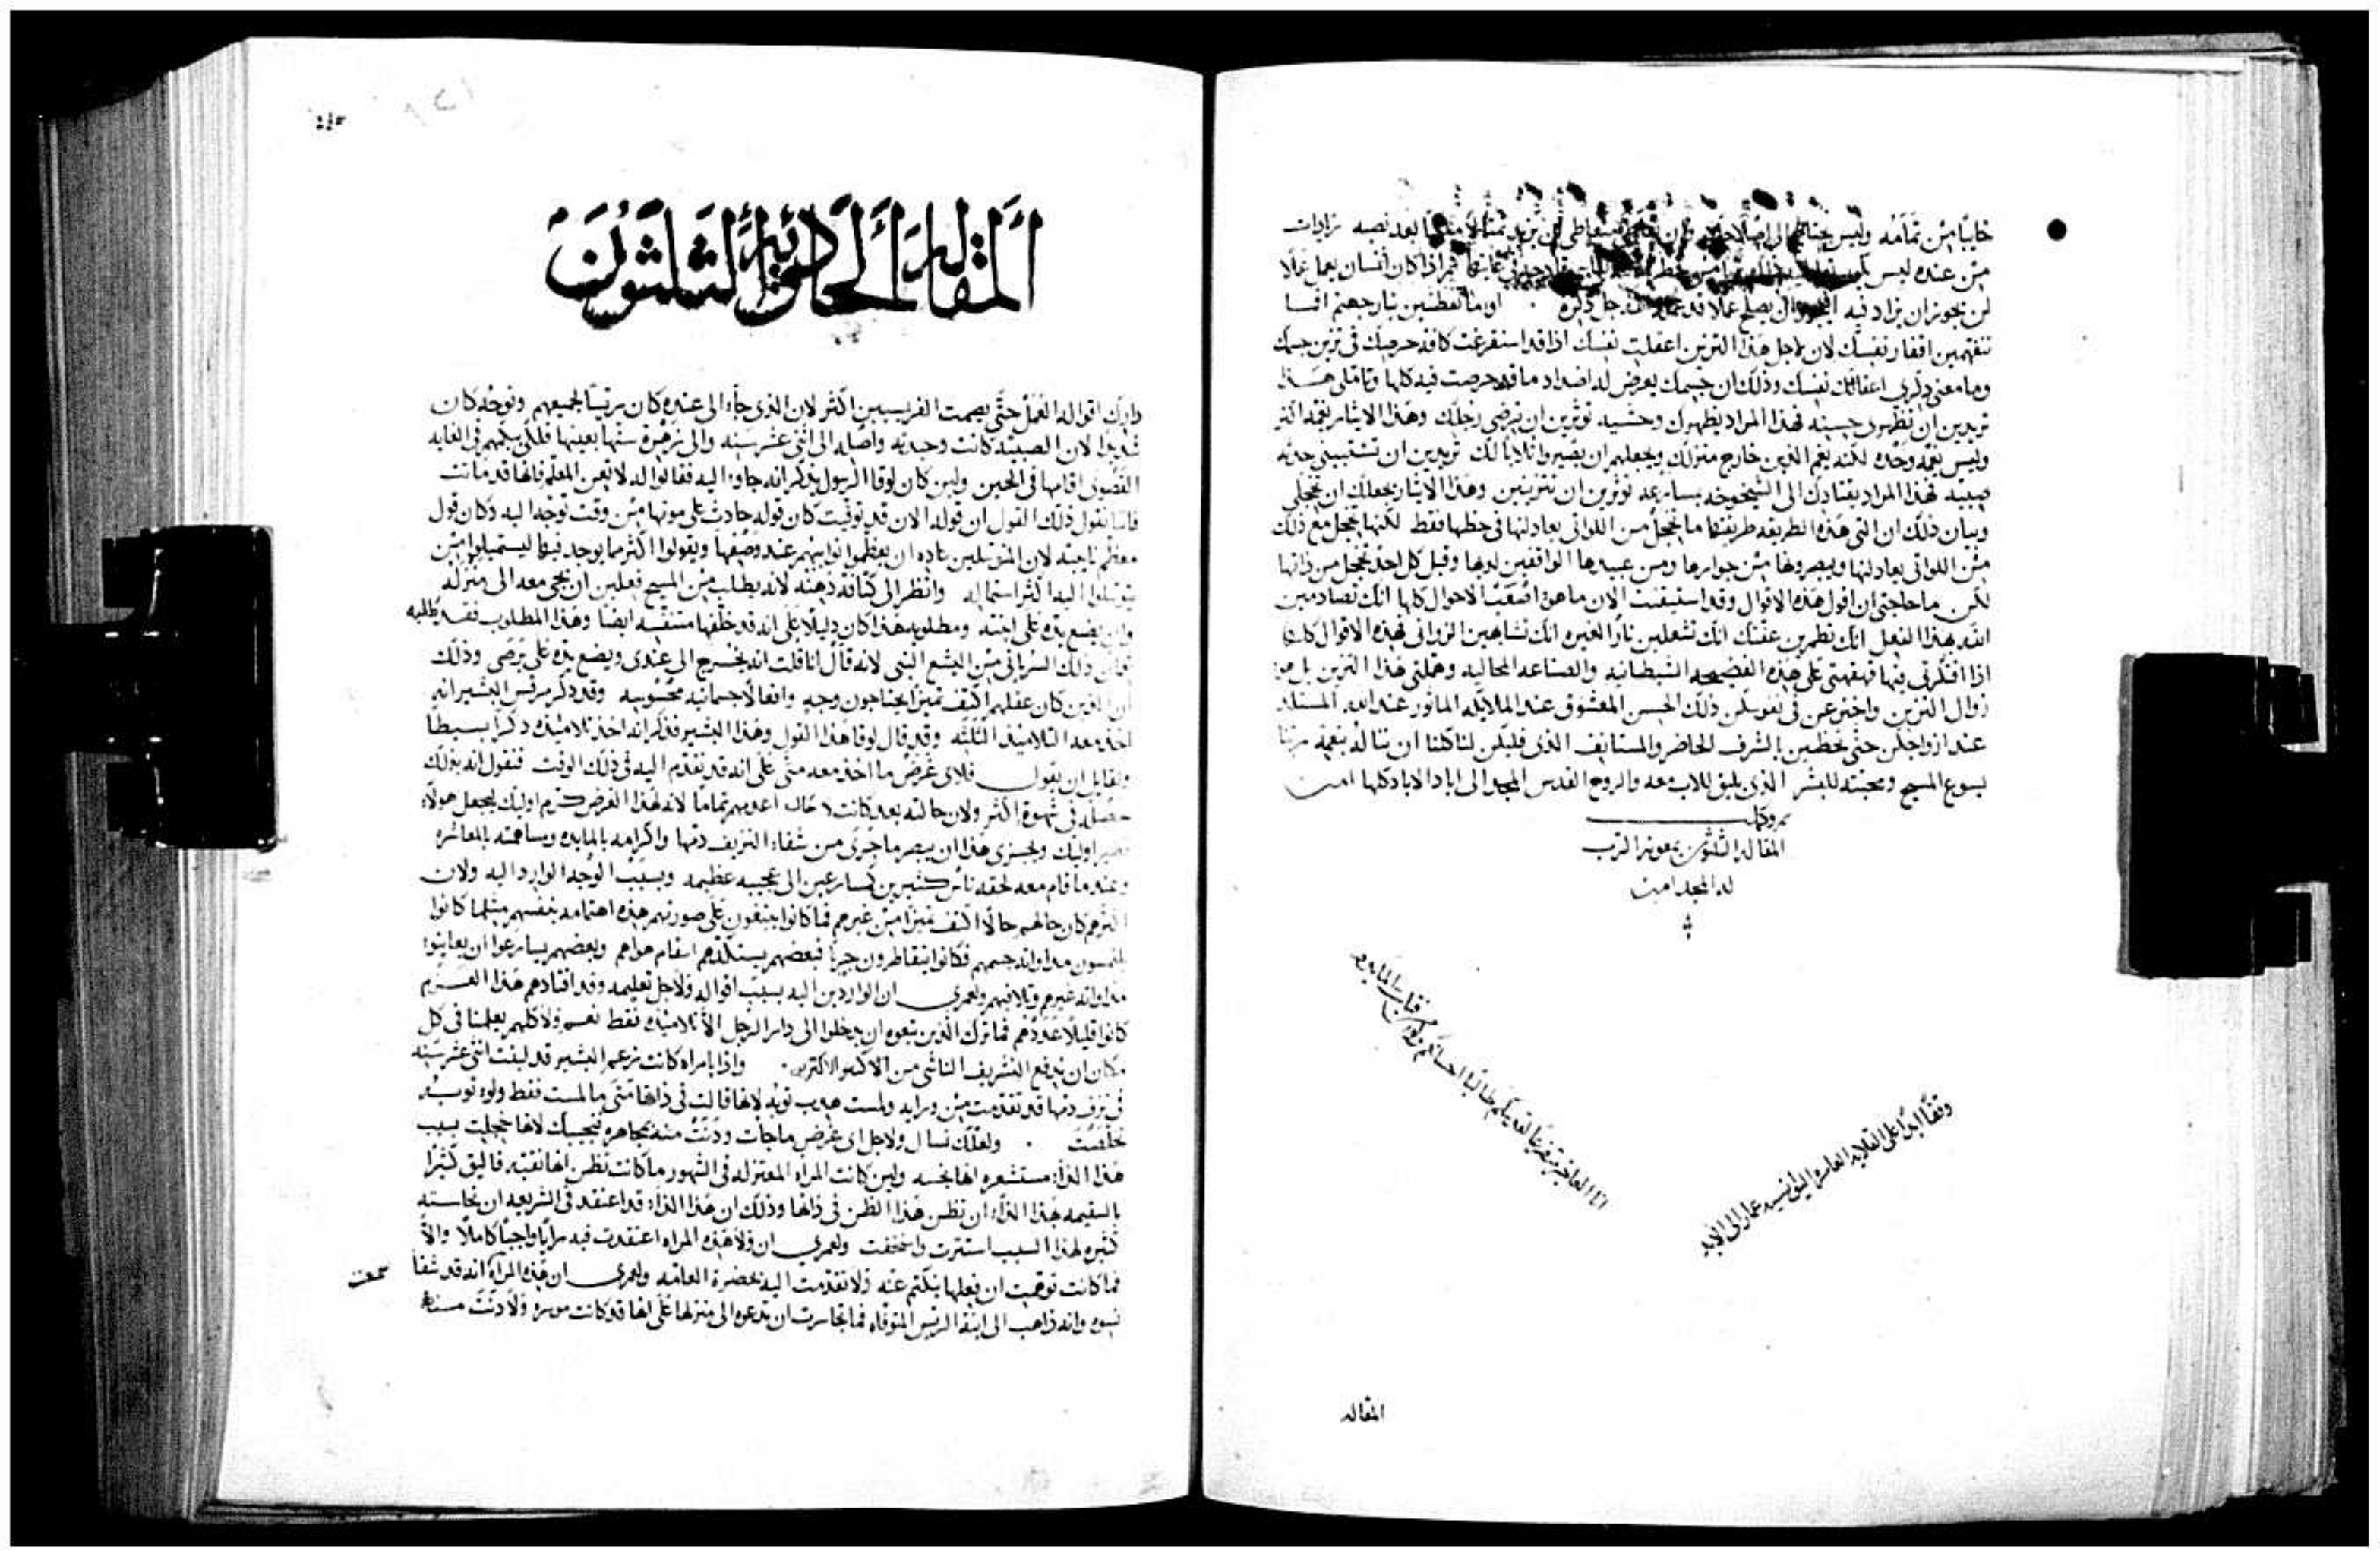 خايبًا من تمامه وليس
من عنده ليس
لن يجوز ان يزاد فيه
تتفهمين افقار نفسك لان لاجل هذا التزين اعقلت نفسك اذا قد استفرغت كافة حرصك في تزين جسمك
وما معنى ذكرى اعقالك نفسك وذلك ان جسمك يعرض له اضداد ما قد حرصت فيه كلها وتاملى هذا
تريدين ان تظهري حسنه فهذا المراد يظهرك وحشيه تؤثرين ان ترضى رجلك وهذا الايثار يغمه اكثر
وليس يغمه وحده لكنه يغم الذين خارج منزلك ويجعلهم ان يصيروا ثلابا لك تريدين ان تستبيني حدثه
صبيه فهذا المراد يقتادك الى الشيخوخه بسارعه تؤثرين ان تتزينين وهذا الايثار يجعلك ان تخجلي
وبيان ذلك ان التي هذه الطريقه طريقتها ما تخجل من اللواتي يعادلنها في حظها فقط لكنها تخجل مع ذلك
من اللواتي يعادلنها ويبصرونها من جوارها ومن عبيدها الواقفين لديها وقبل كل احد تخجل من ذاتها
لكن ما حاجتي ان اقول هذه الاقوال وقد استبقيت الان ما هو اصعب الاحوال كلها انك تصادمين
الله بهذا الفعل انك تطمرين عفتك انك تشعلين نارا لغيره انك تشابهين الزواني فهذه الاقوال كلها
اذا افتكرتي فيها فهقهتي على هذه الفضيحه الشيطانيه والصناعه المحاليه وهملتي هذا التزين بل هو
زوال التزين واخترعن في نفوسكن ذلك الحسن المعشوق عند الملايكه الماثور عند الله المستلذ
عند ازواجكن حتى تحظين بالشرف الحاضر والمستانف الذي فليكن لنا كلنا ان نناله بنعمة ربنا
يسوع المسيح ومحبته للبشر الذي يليق للاب معه والروح القدس المجد الى اباد الاباد كلها امين
تمت وكملت
المقاله الثلثون بمعونة الرب
له المجد امين
وقفًا ابدًا على القلايه العامره
المقاله
المقالة الحادية والثلثون
وادرك اقواله الفعل حتى يصمت الفريسيين اكثر لان الذي جاء الى عنده كان رئيسا لجميعهم وتوحده كان
شديدا لان الصبيه كانت وحيدته واصله الى اثنتي عشر سنه والى زهرة سنها بعينها فلكي يبكمهم في الغايه
القصوى اقامها في الحين ولين كان لوقا الرسول يذكر انه جاوءا اليه فقالوا له لا تعن المعلم فانها قد ماتت
فاننا نقول ذلك القول ان قوله الان قد توفيت كان قوله حادث على موتها من وقت توجه اليه وكان قول
معظم نايحته لان المتوسلين عاده ان يعظموا نوايبهم عند وصفها ويقولوا اكثر مما يوجد فيها ليستميلوا من
يتوسلوا اليه اكثر استماله وانظر الى كثافة ذهنه لانه يطلب من المسيح فعلين ان يجي معه الى منزله
وان يضع يده على ابنته ومطلوبه هذا كان دليلا على انه قد خلفها متنفسه ايضا وهذا المطلوب فقد طلبه
ذلك السرياني من اليشع النبي لانه قال انا قلت انه يخرج الى عندي ويضع يده على برصي وذلك
ان الذين كان عقلهم اكثف تميزا يحتاجون وجه وافعالا جسمانيه محسوسه وقد ذكر مرقس البشير انه
اخذ معه التلاميذ الثلثه وقد قال لوقا هذا القول وهذا البشير فذكر انه اخذ تلاميذه ذكرا بسيطا
ولقايل ان يقول فلاي غرض ما اخذ معه متى على انه قد تقدم اليه في ذلك الوقت فنقول انه بذلك
حصله في شهوة اكثر ولان حالته بعد كانت حال اعدمهم تماما لانه لهذا الغرض كرم اوليك ليجعل هولاء
نظير اوليك ويجزى هذا ان يبصر ما جرى من شفاء النزيف دمها واكرامه بالمايده ومساهمته بالمعاشره
وعند ما قام معه لحقه ناس كثيرين كسارعين الى عجيبه عظيمه وبسبب الوجه الوارد اليه ولان
اكثرهم كان حالهم حالا اكثف تميزا من غيرهم فما كانوا يبتغون على صورتهم هذه اهتمامه بنفسهم مثلما كانوا
يلتمسون مداواته جسمهم فكانوا يتقاطرون جريا فبعضهم يستكدهم اسقام هواهم وبعضهم يسارعوا ان يعاينوا
مداواته غيرهم وتلافيهم ولعمري ان الواردين اليه بسبب اقواله ولاجل تعليمه وقد اقتادهم هذا العزم
كانوا قليلا عددهم فما ترك الذين تبعوه ان يدخلوا الى دار الرجل الا تلاميذه فقط نعم ولا كلهم يعلمنا في كل
مكان ان ندفع التشريف الناشي من الاكثر والاكثرين . واذا بامراه كانت بزعم البشير قد لبثت اثنتي عشر سنه
في نزف دمها قد تقدمت من ورايه ولمست هدب ثوبه لانها قالت في ذاتها متى ما لمست فقط ولو ثوبه
تخلصت . ولعلك تسال ولاجل اي غرض ما جأت ودنت منه بمجاهره فنجيبك لانها خجلت بسبب
هذا الداء مستشعره انها نجسه ولين كانت المراه المعتزله في الشهور ما كانت تظن انها نقيه فاليق كثيرا
بالسقيمه بهذا الداء ان تظن هذا الظن في ذاتها وذلك ان هذا الداء قد اعتقد في الشريعه ان نجاسته
كثيره لهذا السبب استترت واختفت ولعمري ان ولا هذه المراه اعتقدت فيه رايا واجبا كاملا والا
فما كانت توهمت ان فعلها ينكتم عنه ولا تقدمت اليه بحضرة العامه ولعمري ان هذه المراه انه قد شفا
نسوه وانه ذاهب الى ابنة الريس المتوفاه فما تجاسرت ان تدعوه الى منزلها على انها قد كانت موسره ولا دنت منه
سمعت